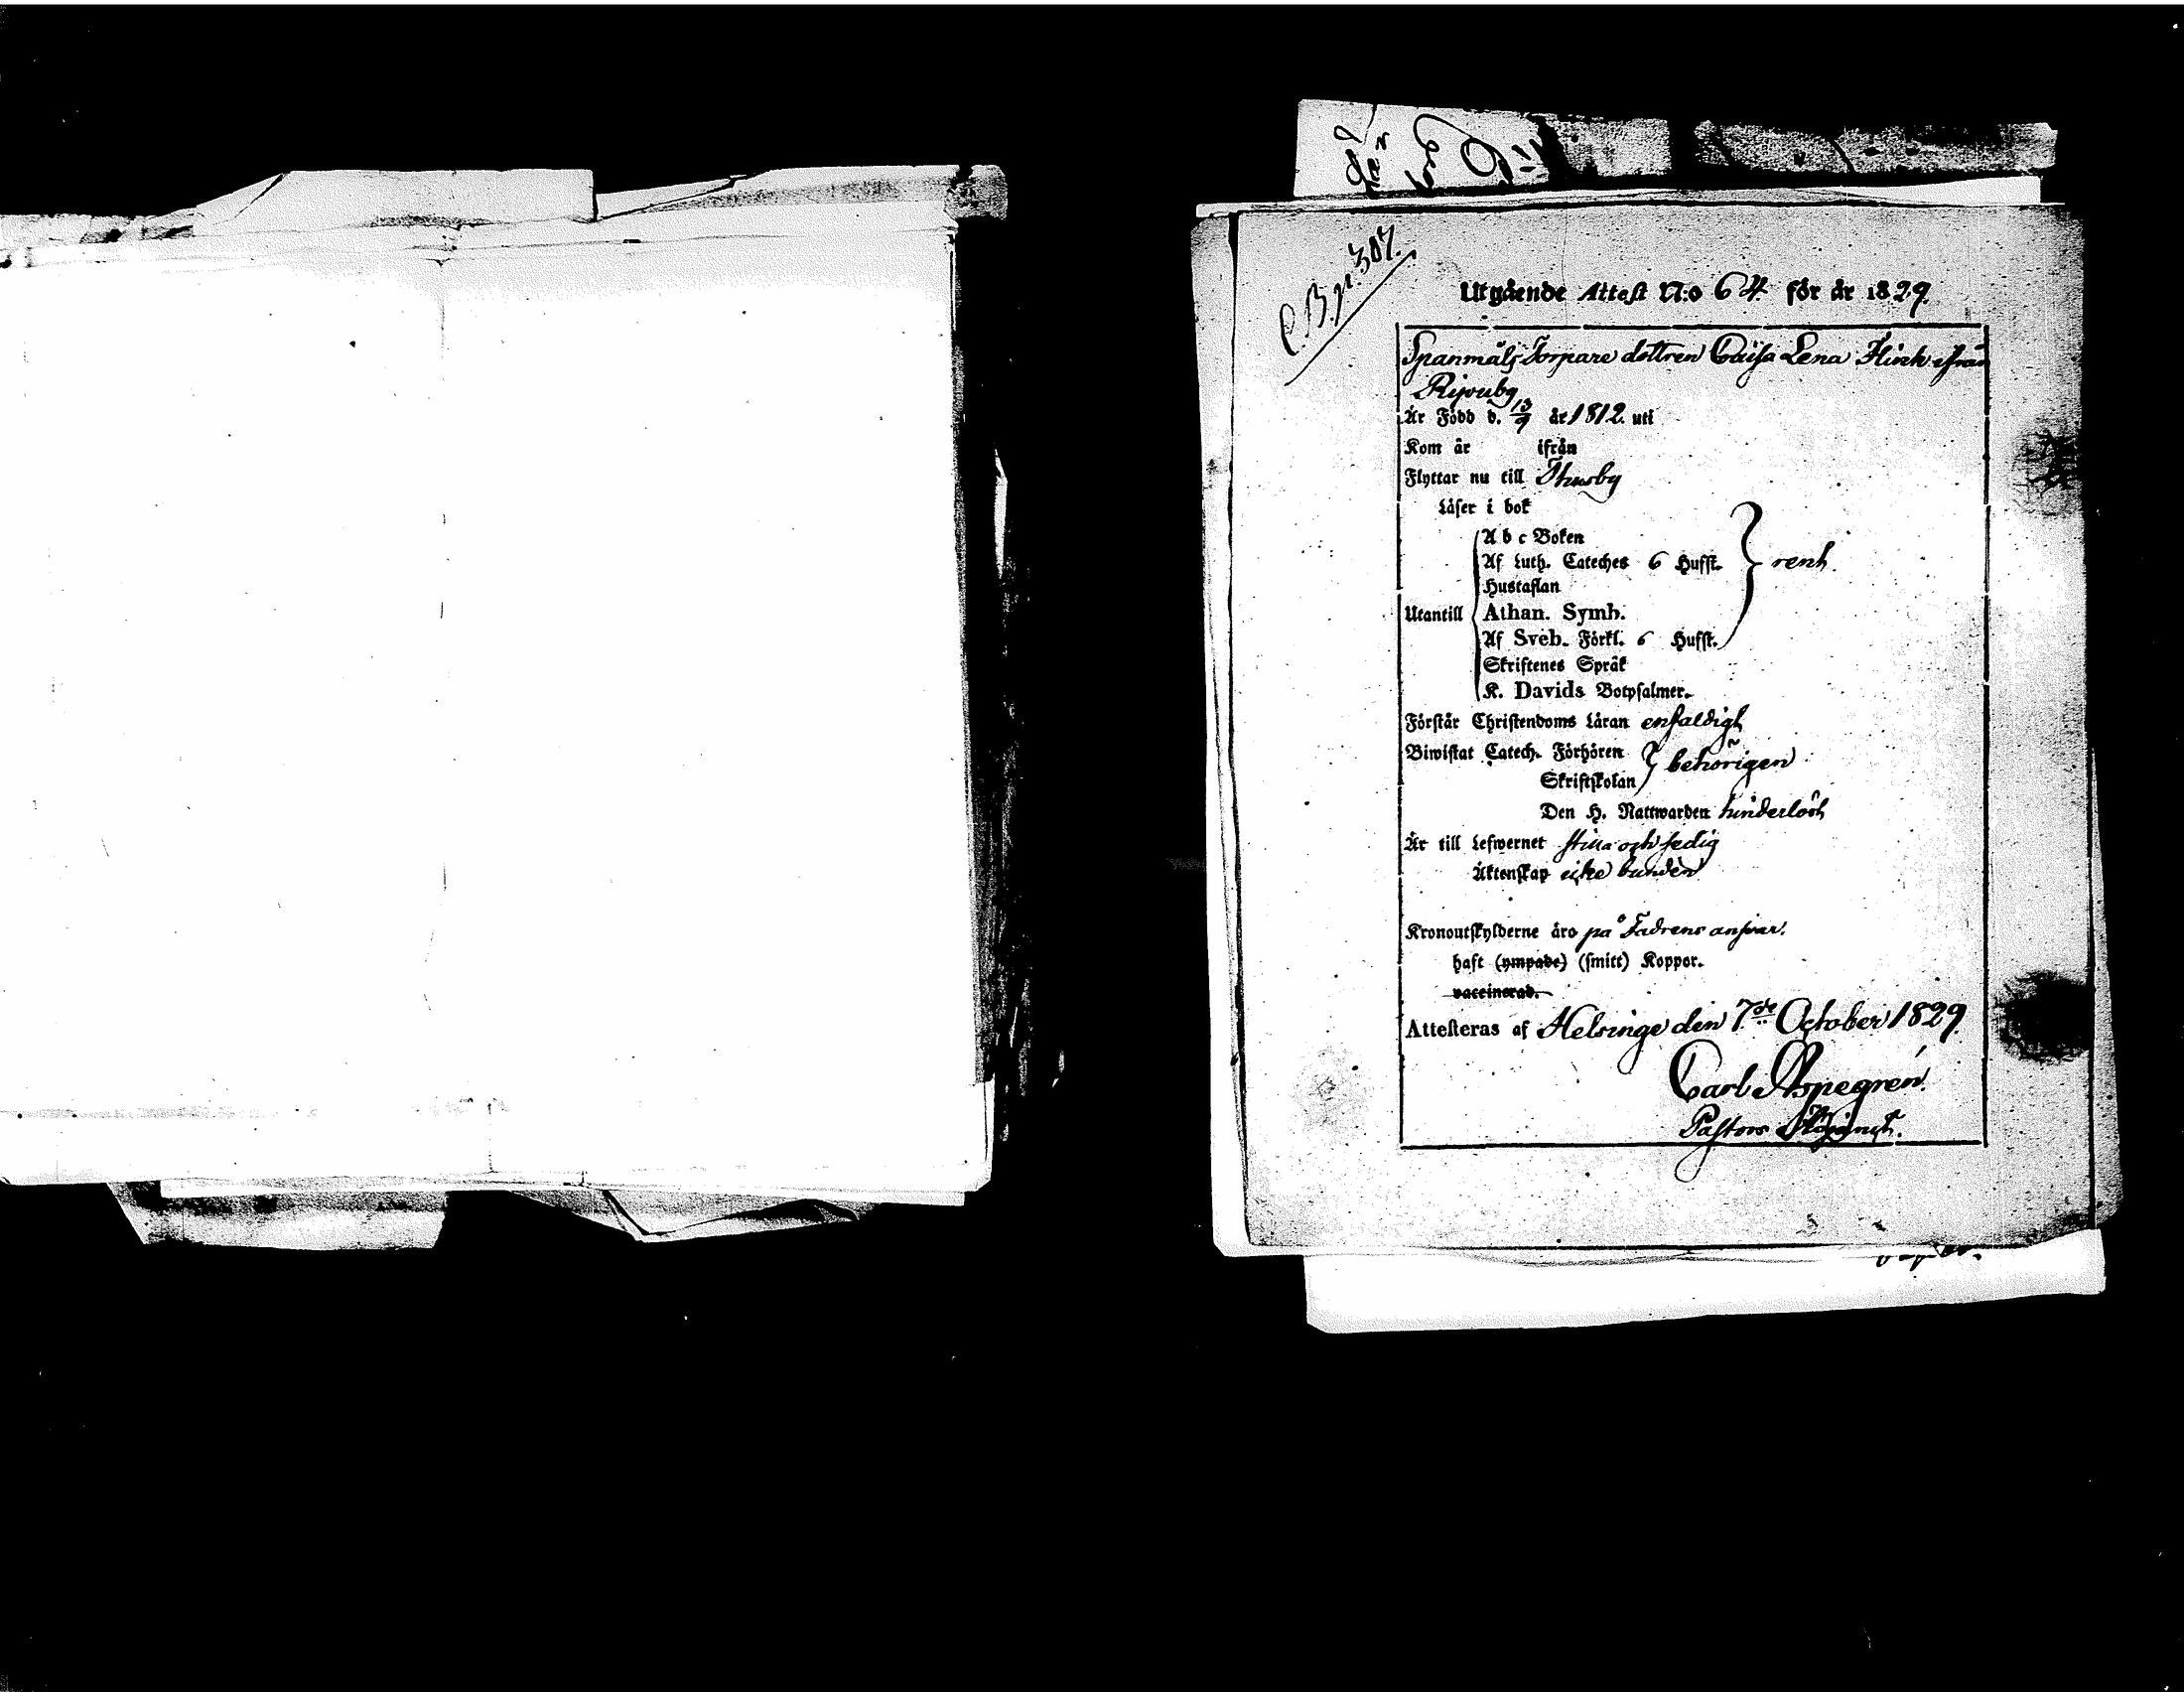 C.B.p. 307.
Utgående Attest N:o 64. för år 1829.
Spanmåls Torpare dottren Caisa Lena Flink ifrån
Är Född d. 13/9 år 1812. uti
Kom år ifrån
Flyttar nu till Thusby
Läser i bok
A b c Boken
Af Luth. Cateches 6 Hufst. } rent.
Hustaflan
Utantill { Athan. Symb.
Af Sveb. Förkl. 6 Hufst.
Skriftenes Språk
K. Davids Botpsalmer.
Förstår Christendoms Läran enfaldigt
Biwistat Catech. Förhören } behörigen
Skriftskolan
Den H. Nattwarden hinderlöst
Är till Lefwernet stilla och sedig
Äktenskap icke bunden
Kronoutskylderne äro på Fadrens answar.
haft (ympade) (smitt) Koppor.
vaccinerad.
Attesteras af Helsinge den 7de October 1829.
Carl Aspegrén.
Pastors